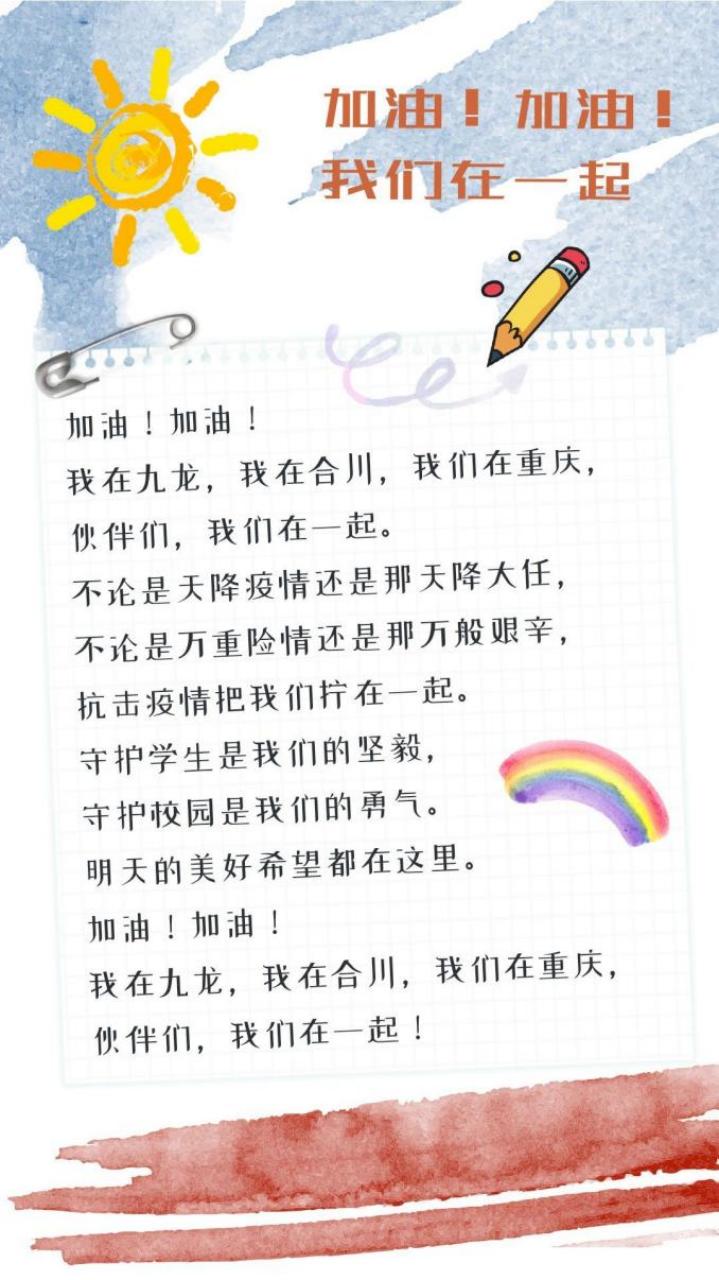 加油！加油！
我们在一起
加油！加油！
我在九龙，我在合川，我们在重庆，
伙伴们，我们在一起。
不论是天降疫情还是那天降大任，
不论是万重险情还是那万般艰辛，
抗击疫情把我们拧在一起。
守护学生是我们的坚毅，
守护校园是我们的勇气。
明天的美好希望都在这里。
加油！加油！
我在九龙，我在合川，我们在重庆，
伙伴们，我们在一起！